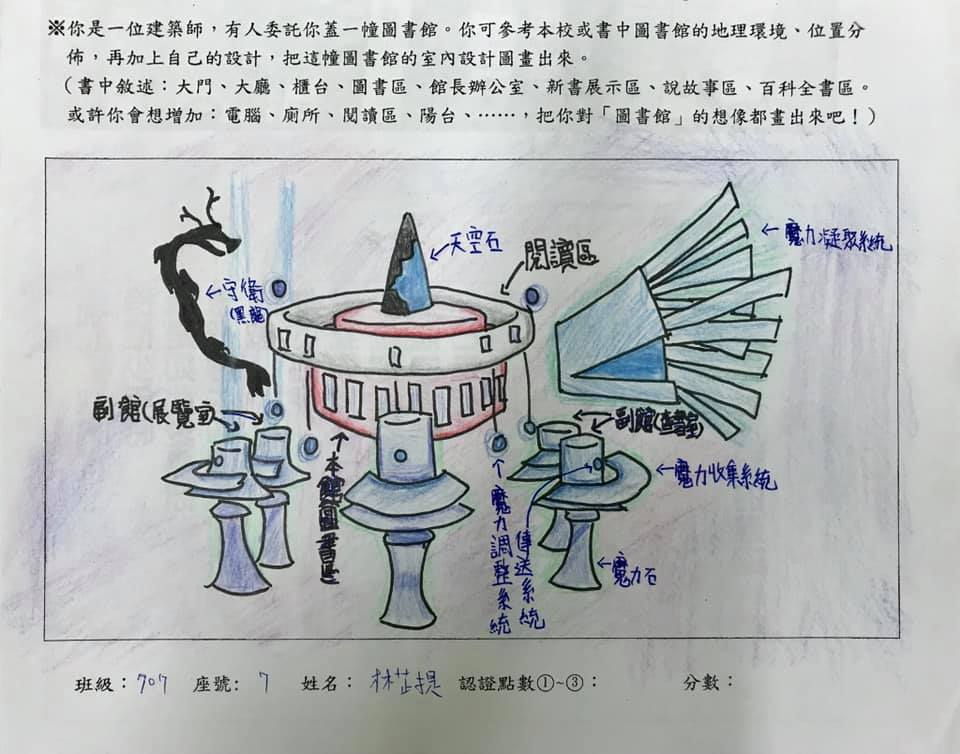 ※你是一位建築師，有人委託你蓋一幢圖書館。你可參考本校或書中圖書館的地理環境、位置分
佈，再加上自己的設計，把這幢圖書館的室內設計圖畫出來。
（書中敘述：大門、大廳、櫃台、圖書區、館長辦公室、新書展示區、說故事區、百科全書區。
或許你會想增加：電腦、廁所、閱讀區、陽台、……，把你對「圖書館」的想像都畫出來吧！）
魔力凝聚系統
天空石
閱讀區
守衛
(黑龍)
副館(展覽室)
副館(書室)
魔力收集系統
本館圖書區
魔力調整系統
傳送系統
魔力石
班級：707 座號: 7 姓名： 林芷提 認證點數①~③： 分數：